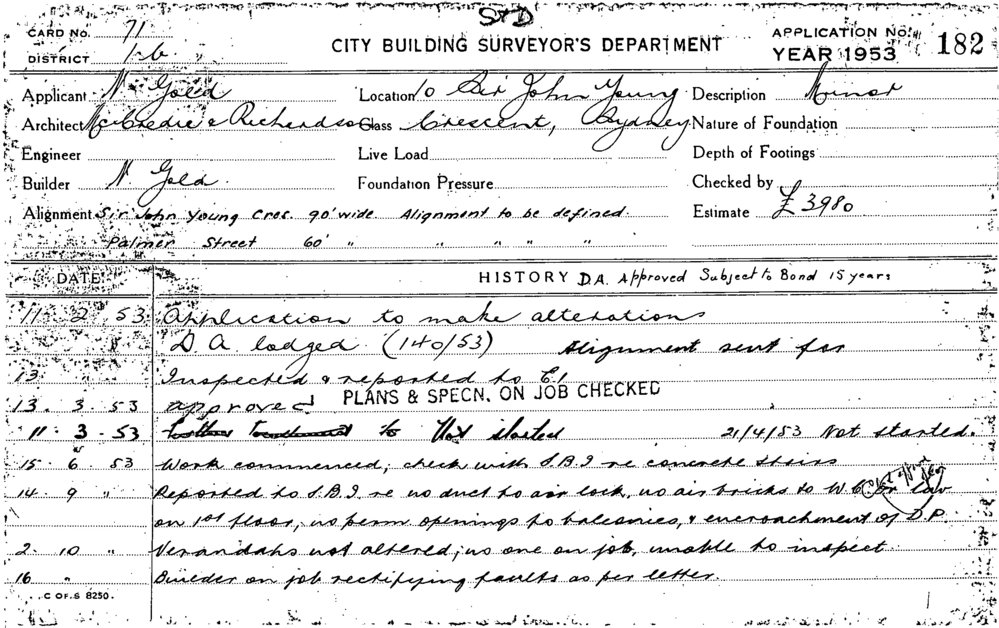 S+D
CARD No. 71
DISTRICT
CITY BUILDING SURVEYOR'S DEPARTMENT
APPLICATION No. 182
YEAR 1953
Applicant N. Gold Location 10 Sir John Young Description Minor
Architect McCredie & Richardson Class Crescent, Sydney Nature of Foundation
Engineer Live Load Depth of Footings
Builder N. Gold. Foundation Pressure Checked by
Alignment Sir John Young Cres. 90' wide. Alignment to be defined. Estimate £3980
Palmer Street 60' " " " " "
DATE HISTORY D.A. Approved Subject to Bond 15 years
11 . 2 . 53 Application to make alterations
" D.A. lodged. (140/53) Alignment sent for
13 " Inspected & reported to
13 . 3 . 53 approved PLANS & SPECN. ON JOB CHECKED
11 . 3 . 53 Not started 21/4/53 Not started.
15 . 6 . 53 Work commenced; check with S.B.I re concrete stairs
14 . 9 " Reported to S.B.I. re no duct to air lock, no air bricks to W.C. or
on 1st floor, no perm openings to balconies, & encroachment of D.P.
2. 10 " Verandahs not altered; no one on job, unable to inspect.
16 " Builder on job rectifying faults as per letter.
C OF.S 8250.